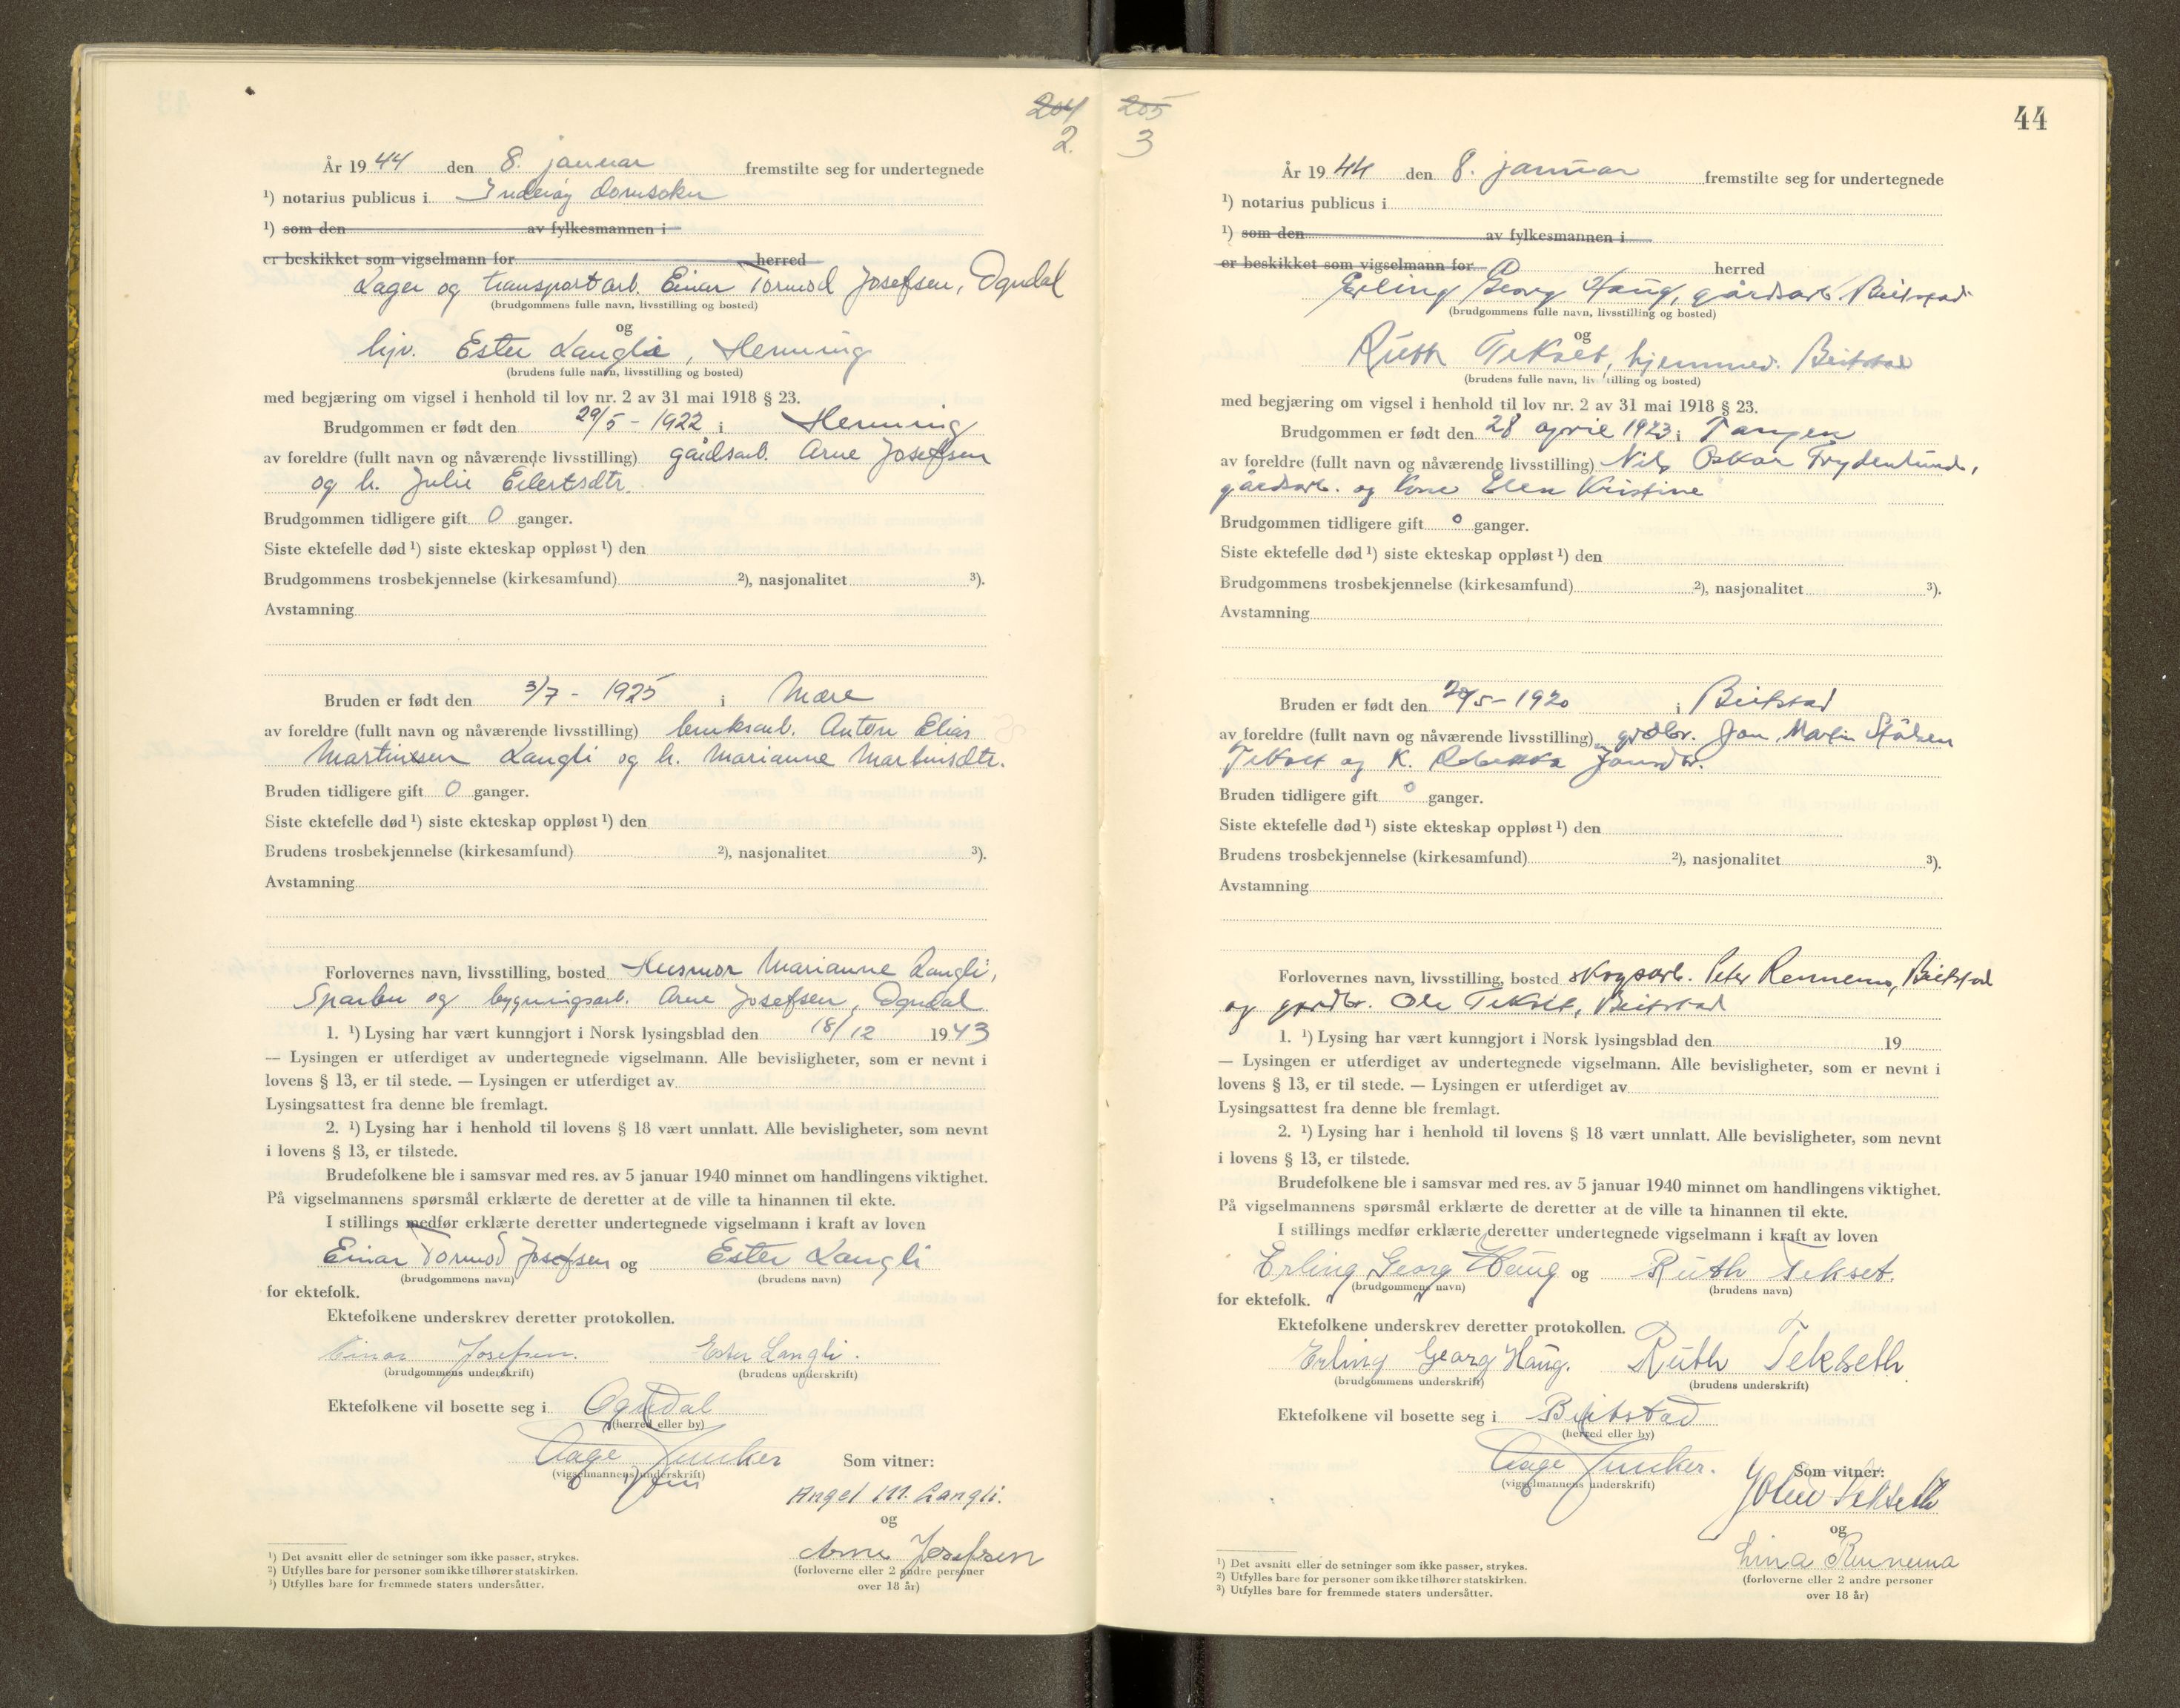 204
2.
År 1944 den 8. januar fremstilte seg for undertegnede
¹) notarius publicus i Inderøy domsokn
¹) som den av fylkesmannen i
er beskikket som vigselmann for herred
Lager og transportarb. Einar Tormod Josefsen, Ogndal
(brudgommens fulle navn, livsstilling og bosted)
og
hjv. Ester Langli, Henning
(brudens fulle navn, livsstilling og bosted)
med begjæring om vigsel i henhold til lov nr. 2 av 31 mai 1918 § 23.
Brudgommen er født den 29/5 - 1922 i Henning
av foreldre (fullt navn og nåværende livsstilling) gårdsarb. Arne Josefsen
og h. Julie Eilertsdtr.
Brudgommen tidligere gift 0 ganger.
Siste ektefelle død ¹) siste ekteskap oppløst ¹) den
Brudgommens trosbekjennelse (kirkesamfund) ²), nasjonalitet ³).
Avstamning
Bruden er født den 3/7 - 1925 i Mære
av foreldre (fullt navn og nåværende livsstilling) bruksarb. Anton Elias
Martinsen Langli og h. Marianne Martinsdtr.
Bruden tidligere gift 0 ganger.
Siste ektefelle død ¹) siste ekteskap oppløst ¹) den
Brudens trosbekjennelse (kirkesamfund) ²), nasjonalitet ³).
Avstamning
Forlovernes navn, livsstilling, bosted Husmor Marianne Langli,
Sparbu og bygningsarb. Arne Josefsen, Ogndal
1. ¹) Lysing har vært kunngjort i Norsk lysingsblad den 18/12 1943
— Lysingen er utferdiget av undertegnede vigselmann. Alle bevisligheter, som er nevnt i
lovens § 13, er til stede. — Lysingen er utferdiget av
Lysingsattest fra denne ble fremlagt.
2. ¹) Lysing har i henhold til lovens § 18 vært unnlatt. Alle bevisligheter, som nevnt
i lovens § 13, er tilstede.
Brudefolkene ble i samsvar med res. av 5 januar 1940 minnet om handlingens viktighet.
På vigselmannens spørsmål erklærte de deretter at de ville ta hinannen til ekte.
I stillings medfør erklærte deretter undertegnede vigselmann i kraft av loven
Einar Tormod Josefsen og Ester Langli
(brudgommens navn) (brudens navn)
for ektefolk.
Ektefolkene underskrev deretter protokollen.
Einar Josefsen. Ester Langli.
(brudgommens underskrift) (brudens underskrift)
Ektefolkene vil bosette seg i Ogndal
(herred eller by)
Aage Juncker
(vigselmannens underskrift)
Som vitner:
Angel M. Langli.
og
Arne Josefsen
(forloverne eller 2 andre personer
over 18 år)
¹) Det avsnitt eller de setninger som ikke passer, strykes.
²) Utfylles bare for personer som ikke tilhører statskirken.
³) Utfylles bare for fremmede staters undersåtter.
205
3
44
År 1944 den 8. januar fremstilte seg for undertegnede
¹) notarius publicus i
¹) som den av fylkesmannen i
er beskikket som vigselmann for herred
Erling Georg Haug, gårdsarb Beitstad
(brudgommens fulle navn, livsstilling og bosted)
og
Ruth Tekset, hjemmev. Beitstad
(brudens fulle navn, livsstilling og bosted)
med begjæring om vigsel i henhold til lov nr. 2 av 31 mai 1918 § 23.
Brudgommen er født den 28 april 1923 i Tangen
av foreldre (fullt navn og nåværende livsstilling) Nils Oskar Frydenlund,
gårdsarb. og kone Elen Kristine
Brudgommen tidligere gift 0 ganger.
Siste ektefelle død ¹) siste ekteskap oppløst ¹) den
Brudgommens trosbekjennelse (kirkesamfund) ²), nasjonalitet ³).
Avstamning
Bruden er født den 20/5 - 1920 i Beitstad
av foreldre (fullt navn og nåværende livsstilling) grdbr. Jon Martin
Tekset og K. Rebekka Jonsdtr.
Bruden tidligere gift 0 ganger.
Siste ektefelle død ¹) siste ekteskap oppløst ¹) den
Brudens trosbekjennelse (kirkesamfund) ²), nasjonalitet ³).
Avstamning
Forlovernes navn, livsstilling, bosted skogsarb. Peter Rennemo, Beitstad
og gårdbr. Ole Tekset, Beitstad
1. ¹) Lysing har vært kunngjort i Norsk lysingsblad den 19
— Lysingen er utferdiget av undertegnede vigselmann. Alle bevisligheter, som er nevnt i
lovens § 13, er til stede. — Lysingen er utferdiget av
Lysingsattest fra denne ble fremlagt.
2. ¹) Lysing har i henhold til lovens § 18 vært unnlatt. Alle bevisligheter, som nevnt
i lovens § 13, er tilstede.
Brudefolkene ble i samsvar med res. av 5 januar 1940 minnet om handlingens viktighet.
På vigselmannens spørsmål erklærte de deretter at de ville ta hinannen til ekte.
I stillings medfør erklærte deretter undertegnede vigselmann i kraft av loven
Erling Georg Haug og Ruth Tekset.
(brudgommens navn) (brudens navn)
for ektefolk.
Ektefolkene underskrev deretter protokollen.
Erling Georg Haug. Ruth Tekseth
(brudgommens underskrift) (brudens underskrift)
Ektefolkene vil bosette seg i Beitstad
(herred eller by)
Aage Juncker.
(vigselmannens underskrift)
Som vitner:
Tekseth
og
Lina Rennemo
(forloverne eller 2 andre personer
over 18 år)
¹) Det avsnitt eller de setninger som ikke passer, strykes.
²) Utfylles bare for personer som ikke tilhører statskirken.
³) Utfylles bare for fremmede staters undersåtter.